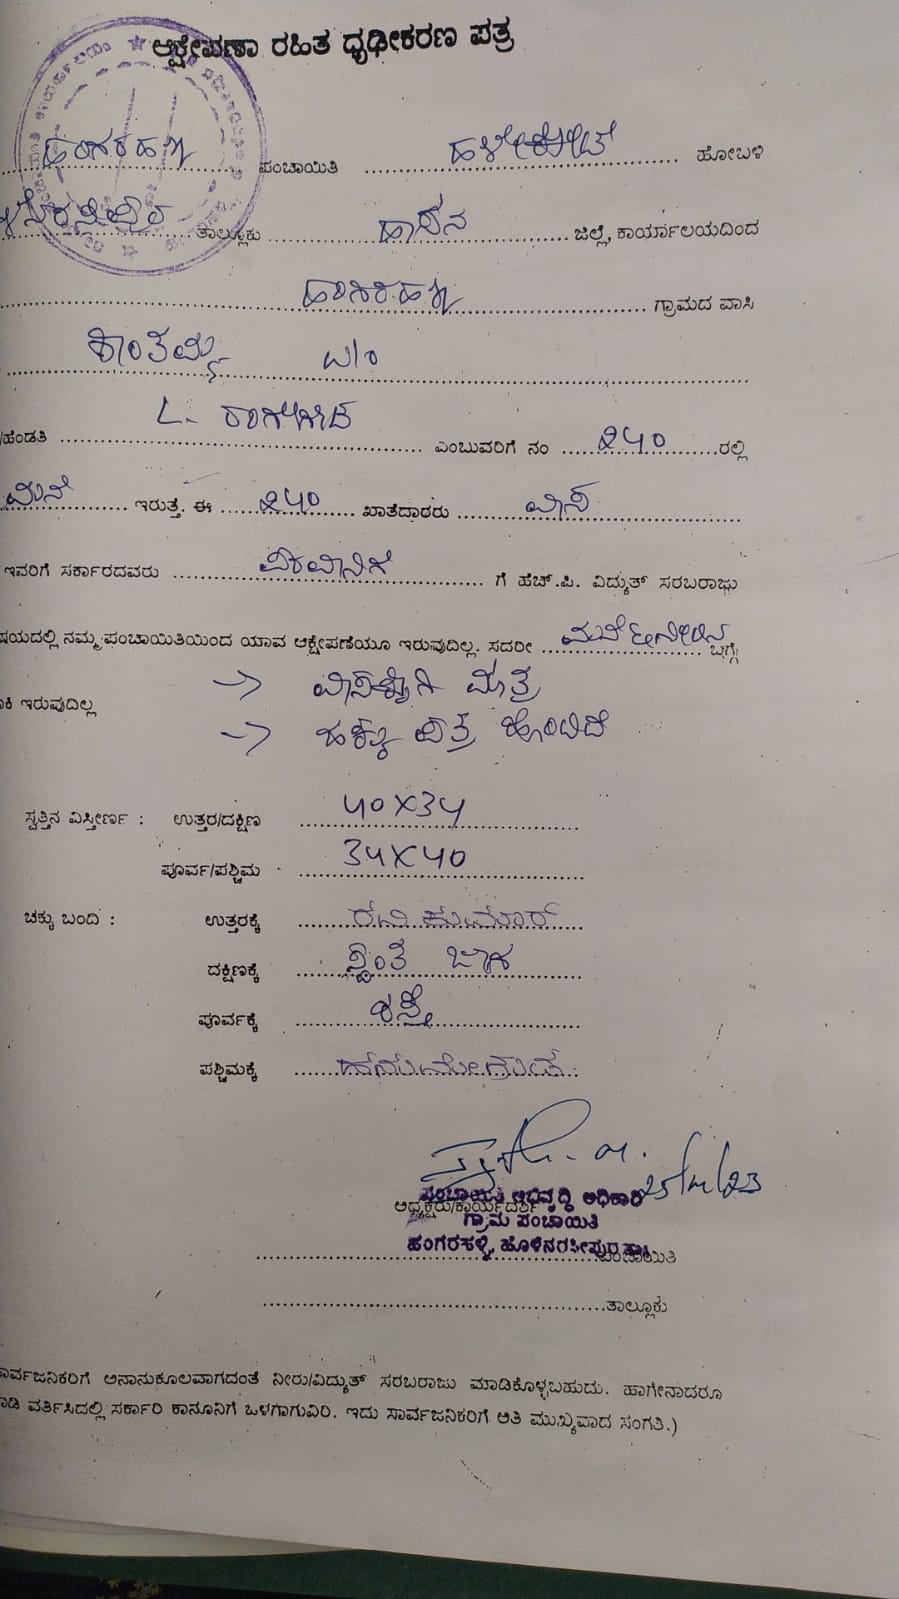 ಆಕ್ಷೇಪಣಾ ರಹಿತ ಧೃಢೀಕರಣ ಪತ್ರ
ಹಂಗರಹಳ್ಳಿ ಪಂಚಾಯಿತಿ ಹಳೇಕೋಟೆ ಹೋಬಳಿ
ತಾಲ್ಲೂಕು ಹಾಸನ ಜಿಲ್ಲೆ, ಕಾರ್ಯಾಲಯದಿಂದ
ಹಂಗರಹಳ್ಳಿ ಗ್ರಾಮದ ವಾಸಿ
ಶಾಂತಮ್ಮ
/ಹೆಂಡತಿ ಎಂಬುವರಿಗೆ ನಂ 240 ರಲ್ಲಿ
ಮನೆ ಇರುತ್ತೆ. ಈ 240 ಖಾತೆದಾರರು ವಾಸ
ಇವರಿಗೆ ಸರ್ಕಾರದವರು ಗೆ ಹೆಚ್.ಪಿ. ವಿದ್ಯುತ್ ಸರಬರಾಜು
ಷಯದಲ್ಲಿ ನಮ್ಮ ಪಂಚಾಯಿತಿಯಿಂದ ಯಾವ ಆಕ್ಷೇಪಣೆಯೂ ಇರುವುದಿಲ್ಲ. ಸದರೀ ಬಗ್ಗೆ
→ ಮಾತ್ರ
ಕಿ ಇರುವುದಿಲ್ಲ
→ ಹಕ್ಕು ಪತ್ರ ಹೊಂದಿದೆ
ಸ್ವತ್ತಿನ ವಿಸ್ತೀರ್ಣ : ಉತ್ತರ/ದಕ್ಷಿಣ 40X34
ಪೂರ್ವ/ಪಶ್ಚಿಮ 34X40
ಚಕ್ಕು ಬಂದಿ : ಉತ್ತರಕ್ಕೆ ರವಿಕುಮಾರ್
ದಕ್ಷಿಣಕ್ಕೆ ಸ್ವಂತ ಜಾಗ
ಪೂರ್ವಕ್ಕೆ ರಸ್ತೆ
ಪಶ್ಚಿಮಕ್ಕೆ ಹನುಮೇಗೌಡ
ಪಂಚಾಯತಿ ಅಭಿವೃದ್ಧಿ ಅಧಿಕಾರಿ
ಅಧ್ಯಕ್ಷರು/ಕಾರ್ಯದರ್ಶಿ
ಗ್ರಾಮ ಪಂಚಾಯಿತಿ
ಹಂಗರಹಳ್ಳಿ, ಹೊಳೆನರಸೀಪುರ ತಾ||
ಪಂಚಾಯಿತಿ
ತಾಲ್ಲೂಕು
ಾರ್ವಜನಿಕರಿಗೆ ಅನಾನುಕೂಲವಾಗದಂತೆ ನೀರು/ವಿದ್ಯುತ್ ಸರಬರಾಜು ಮಾಡಿಕೊಳ್ಳಬಹುದು. ಹಾಗೇನಾದರೂ
ಾಡಿ ವರ್ತಿಸಿದಲ್ಲಿ ಸರ್ಕಾರಿ ಕಾನೂನಿಗೆ ಒಳಗಾಗುವಿರಿ. ಇದು ಸಾರ್ವಜನಿಕರಿಗೆ ಅತಿ ಮುಖ್ಯವಾದ ಸಂಗತಿ.)